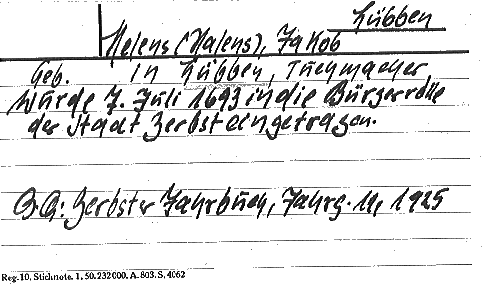 Lübben
Helens (Halens), Jakob
Geb. in Lübben, Tuchmacher,
wurde 7. Juli 1693 in die Bürgerrolle
der Stadt Zerbst eingetragen.
Q.Q: Zerbster Jahrbuch, Jahrg. 11, 1925
Reg. 10, Stichnote. 1, 50. 232000. A. 803. S. 4062